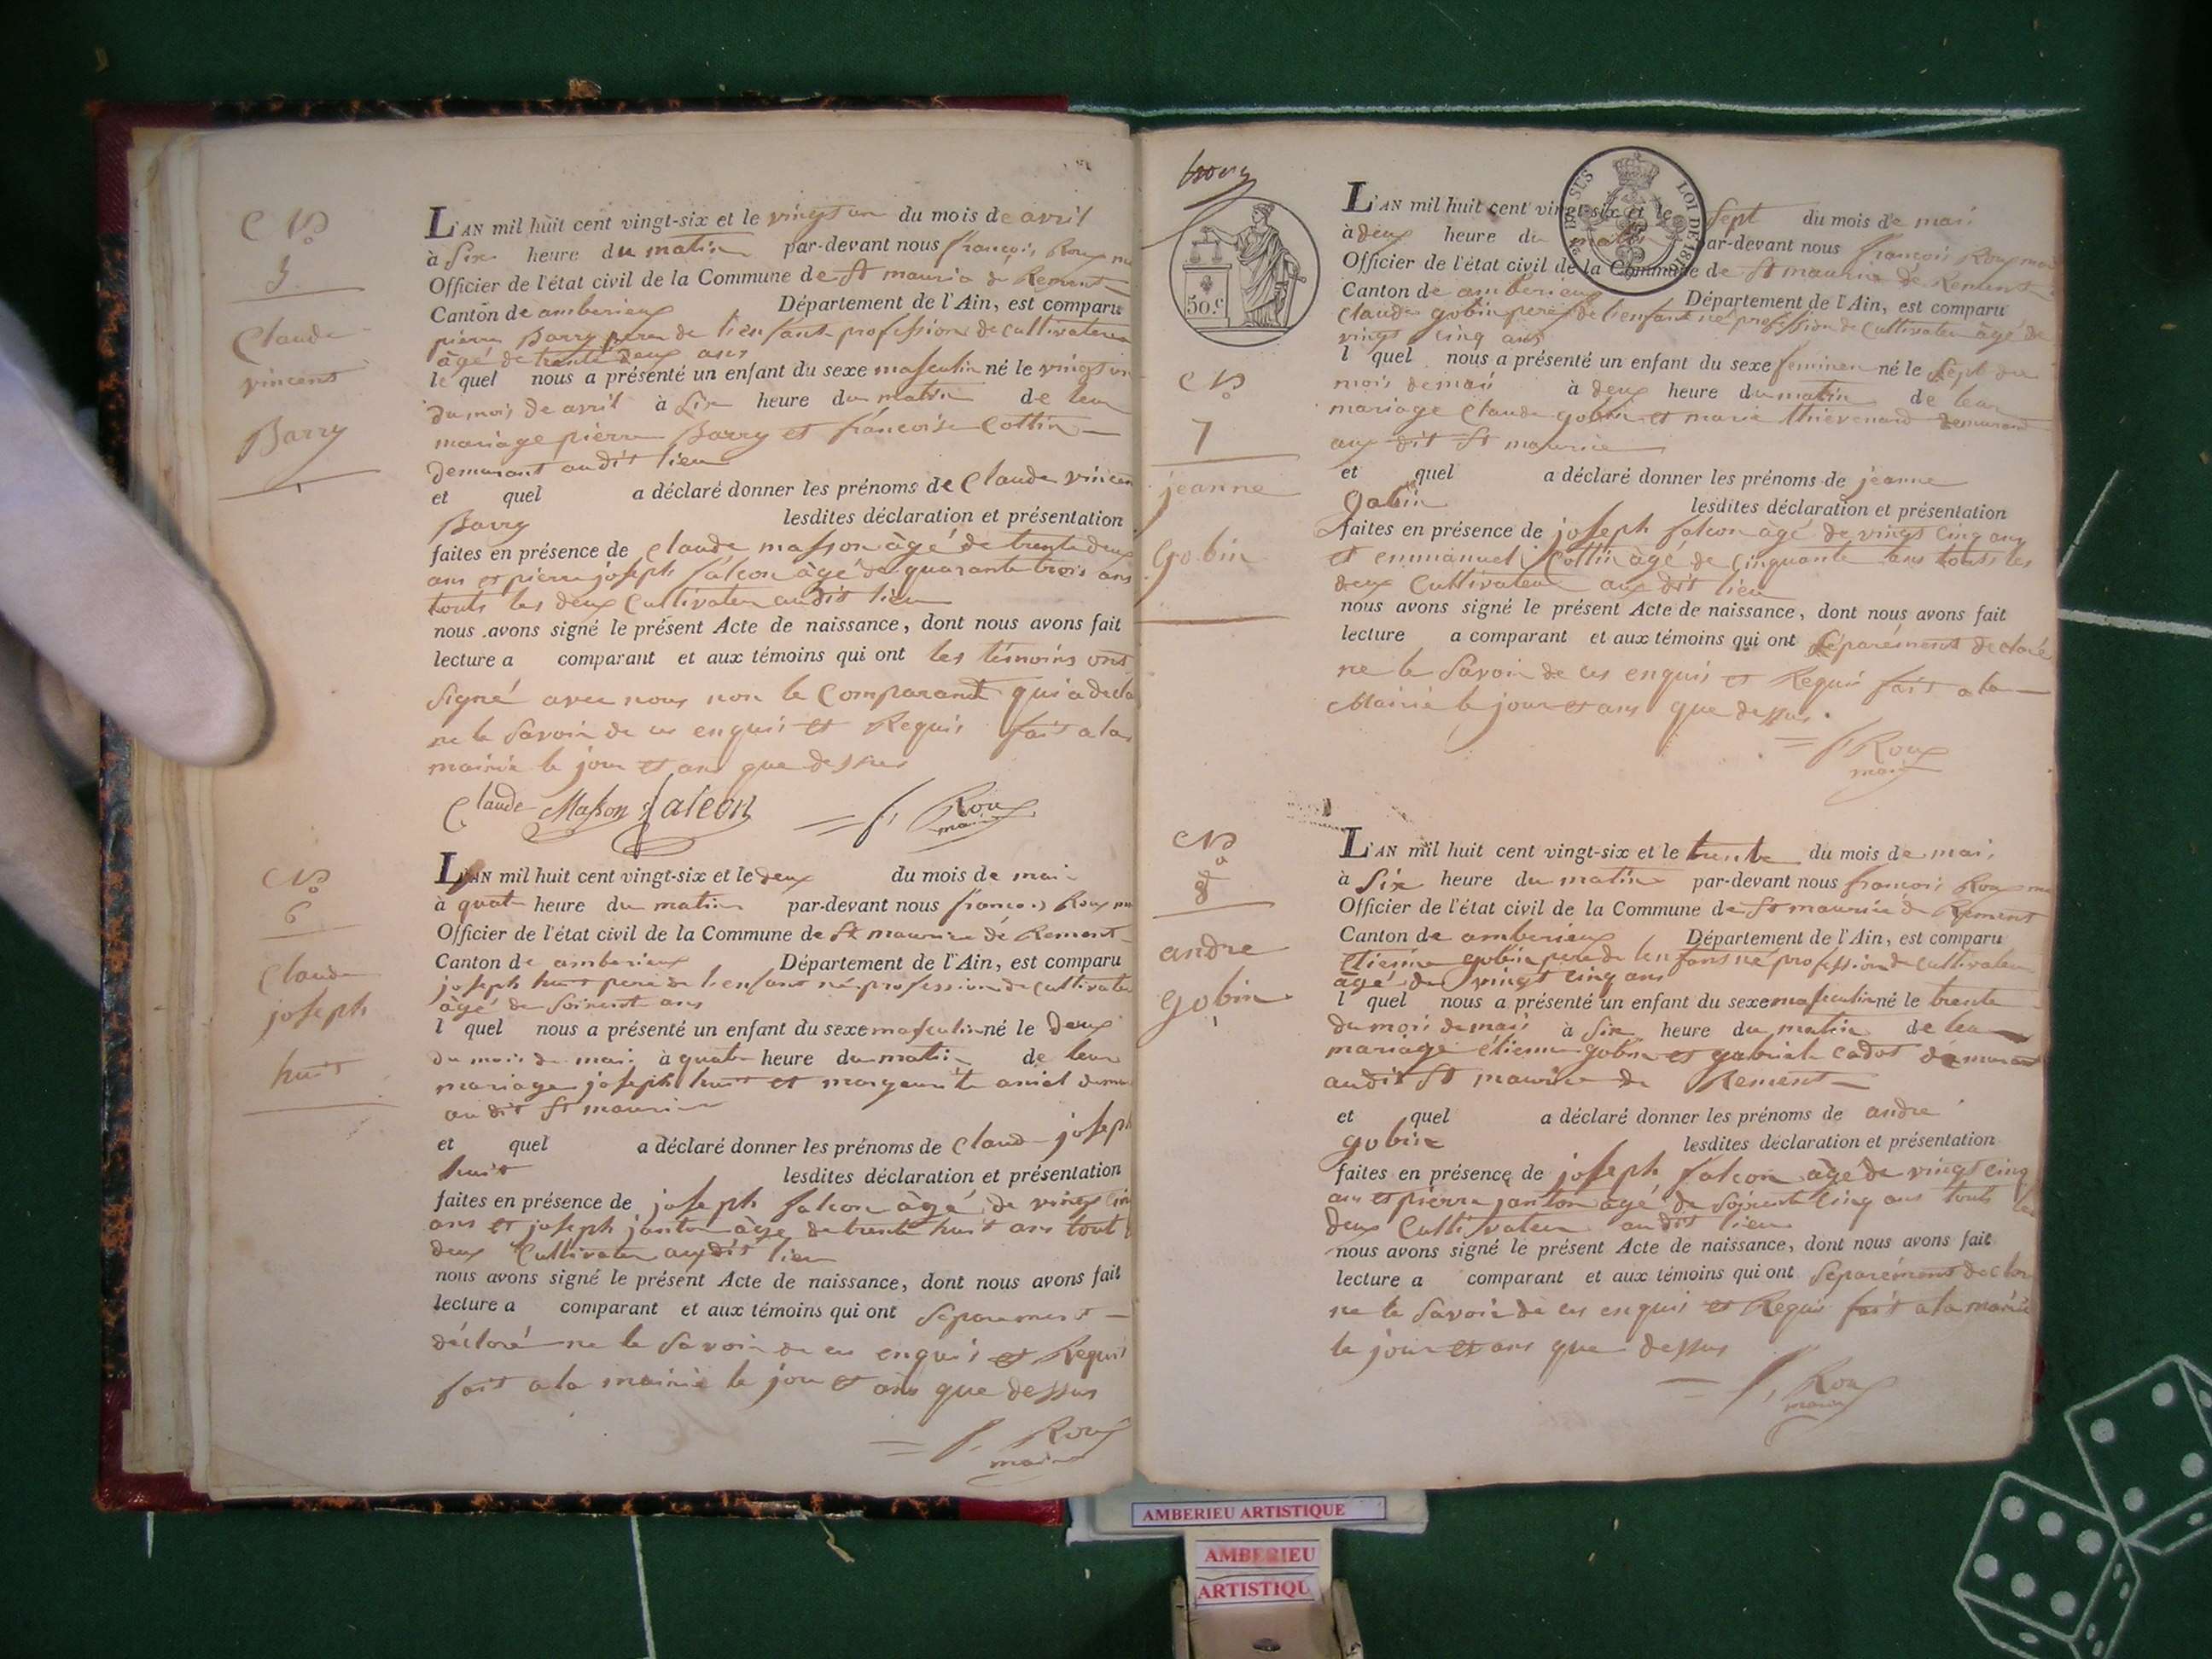 N°
5
Claude
vincent
Barry
L'AN mil huit cent vingt-six et le vingt un du mois de avril
à Six heure du matin par-devant nous françois Roux
Officier de l'état civil de la Commune de St mauria de Rement
Canton de amberieux Département de l'Ain, est comparu
pierre Barry pere de l'enfant profession de cultivateur
âgé de trente deux ans
le quel nous a présenté un enfant du sexe masculin né le vingt un
du mois de avril à Six heure du matin de leur
mariage pierre Barry et françoise Cottin
demurant audit lieu
et quel a déclaré donner les prénoms de Claude vincen
Barry lesdites déclaration et présentation
faites en présence de Claude masson âgé de trente deux
ans et pierre joseph falcon âgé de quarante trois ans
touts les deux Cultivateur audit lieu
nous avons signé le présent Acte de naissance, dont nous avons fait
lecture a comparant et aux témoins qui ont les témoins ont
Signé avec nous non le Comparant qui a decla
ne le Savoir de ces enquis et Requis fait a la
mairie le jour et ans que dessus
Claude Masson falcon f. Roux
maire
N°
6
Claude
joseph
huit
L'AN mil huit cent vingt-six et le deux du mois de mai
à quatr heure du matin par-devant nous françois Roux
Officier de l'état civil de la Commune de St maurice de Rement
Canton de amberieux Département de l'Ain, est comparu
joseph huit pere de l'enfant né profession de cultivateu
âgé de Soixent ans
l quel nous a présenté un enfant du sexe masculin né le deux
du mois de mai à quatr heure du matin de leur
mariage joseph huit et marguerite amiel
au dit St maurice
et quel a déclaré donner les prénoms de Claud joseph
huit lesdites déclaration et présentation
faites en présence de joseph falcon âgé de vingt cin
ans et joseph janton âgé de trente huit ans tout
deux Cultivateur audit lieu
nous avons signé le présent Acte de naissance, dont nous avons fait
lecture a comparant et aux témoins qui ont Séparement
déclaré ne le Savoir de ces enquis et Requis
fait a la mairie le jour et ans que dessus
f. Roux
maire
50.c
24 DESSUS LOI DE 1816
N°
7
jeanne
gobin
L'AN mil huit cent vingt-six et le Sept du mois de mai
à deux heure du matin par-devant nous françois Roux
Officier de l'état civil de la Commune de St maurice de Rement
Canton de amberieux Département de l'Ain, est comparu
Claude gobin pere de l'enfant né profession de Cultivateu âgé de
vingt cinq ans
l quel nous a présenté un enfant du sexe feminen né le Sept du
mois de mai à deux heure du matin de leur
mariage Claude gobin et marie thievenard demurant
aux dit St maurice
et quel a déclaré donner les prénoms de jeanne
gobin lesdites déclaration et présentation
faites en présence de joseph falcon âgé de vingt cinq ans
et emmanuel Cottin âgé de cinquante ans touts les
deux Cultivateur aux dit lieu
nous avons signé le présent Acte de naissance, dont nous avons fait
lecture a comparant et aux témoins qui ont Séparément declaré
ne le Savoir de ces enquis et Requis fait a la
Mairie le jour et ans que dessus.
f Roux
maire
N°
8
andre
gobin
L'AN mil huit cent vingt-six et le trente du mois de mai
à Six heure du matin par-devant nous françois Roux
Officier de l'état civil de la Commune de St maurice de Rement
Canton de amberieux Département de l'Ain, est comparu
Etienne gobin pere de l'enfans né profession de cultivateu
âgé de vingt cinq ans
l quel nous a présenté un enfant du sexe masculin né le trente
du mois de mai à Six heure du matin de leur
mariage étienne gobin et gabriel cadot demurant
audit St maurice de Rement
et quel a déclaré donner les prénoms de andre
gobin lesdites déclaration et présentation
faites en présence de joseph falcon âgé de vingt cinq
ans et pierre janton âgé de Soixente cinq ans touts les
deux Cultivateur audit lieu
nous avons signé le présent Acte de naissance, dont nous avons fait
lecture a comparant et aux témoins qui ont Separément declar
ne le Savoir de ces enquis et Requis fait a la mairie
le jour et ans que dessus
f. Roux
maire
AMBERIEU ARTISTIQUE
AMBERIEU
ARTISTIQU